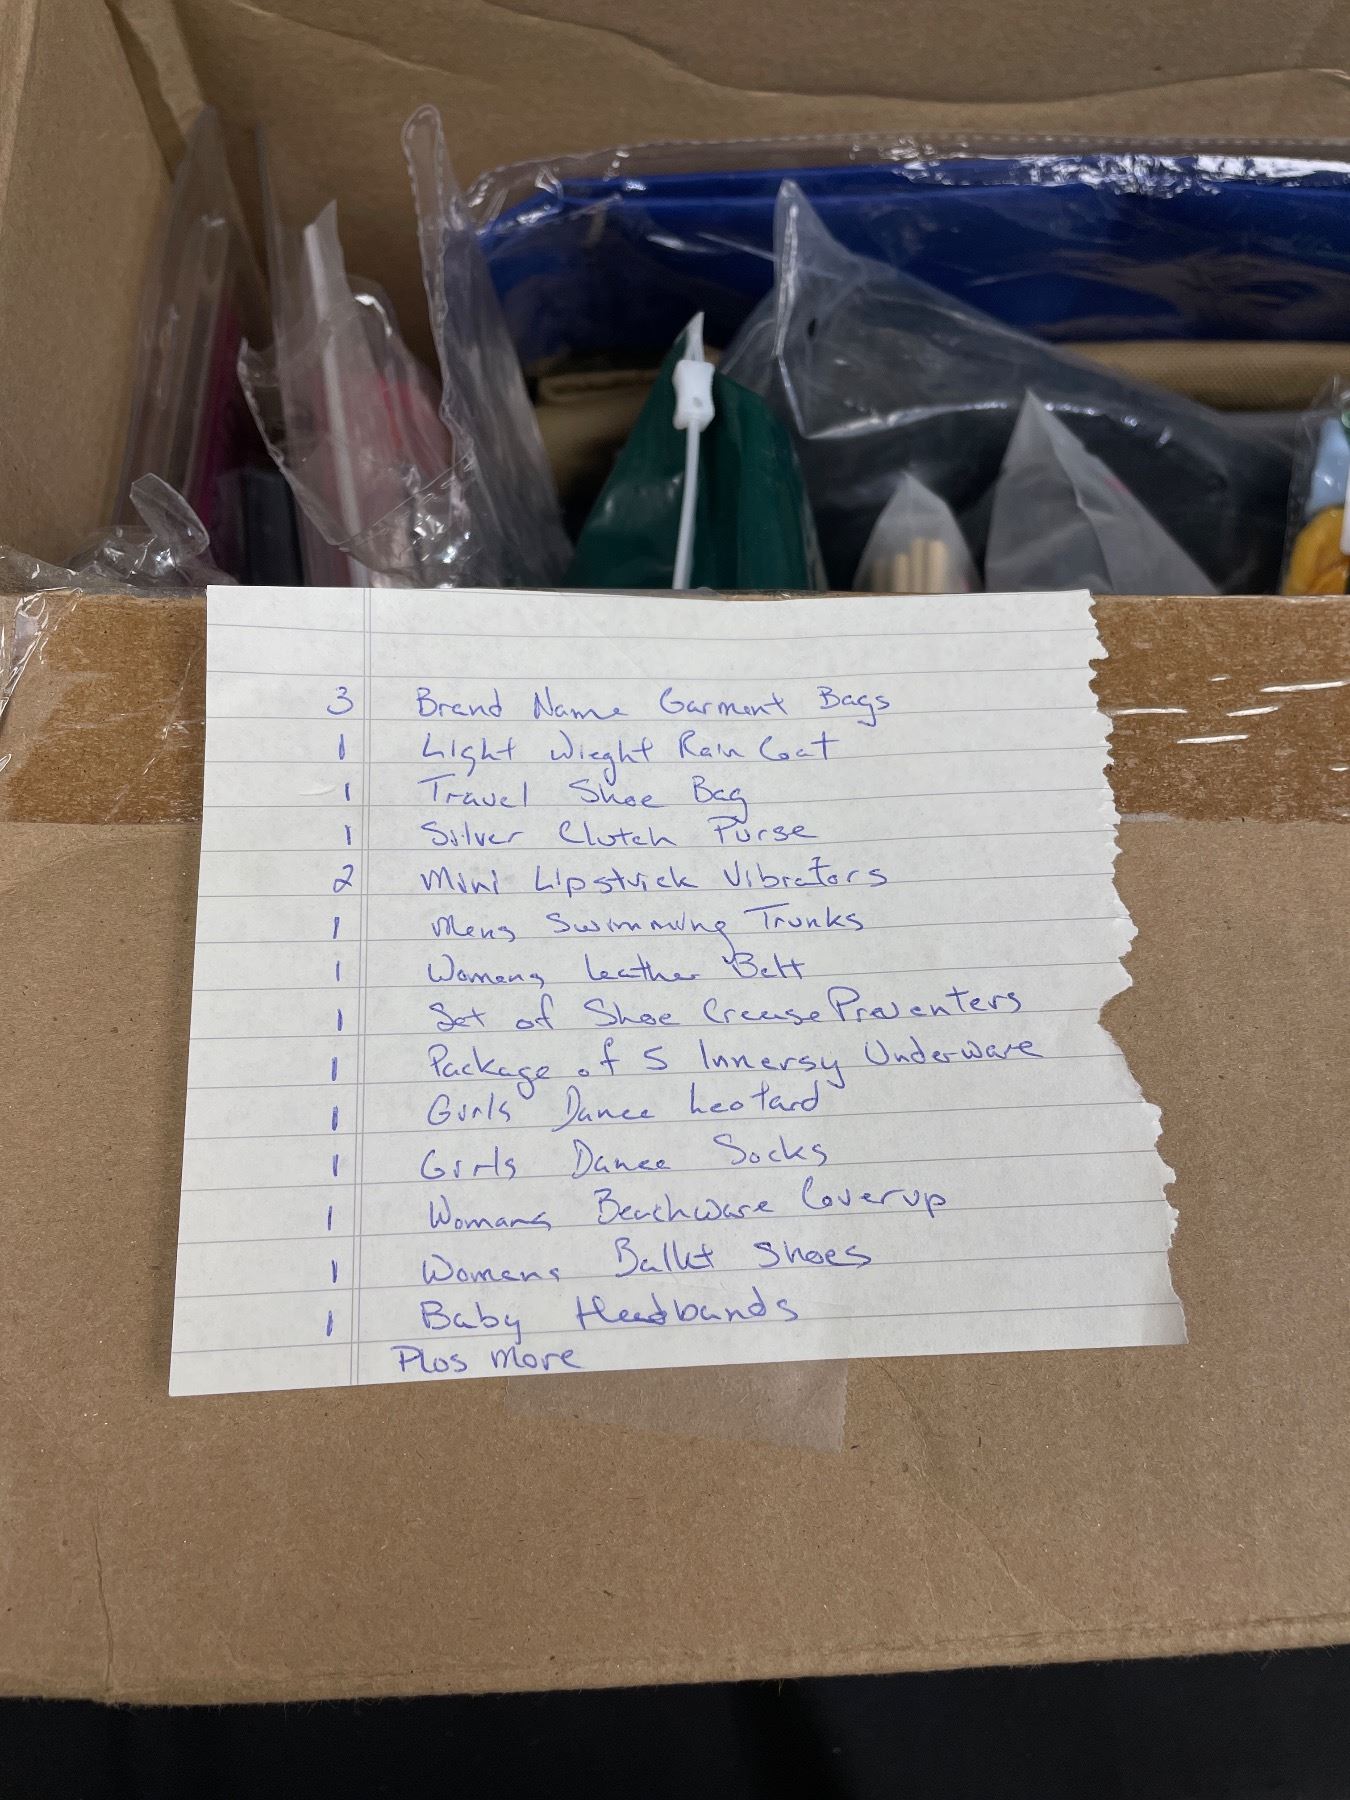 3 Brand Name Garment Bags
1 Light Wieght Rain Coat
1 Travel Shoe Bag
1 Silver Clutch Purse
2 Mini Lipstick Vibrators
1 Mens Swimming Trunks
1 Womens Leather Belt
1 Set of Shoe Crease Preventers
1 Package of 5 Innersy Underware
1 Girls Dance Leotard
1 Girls Dance Socks
1 Womans Beachware Coverup
1 Womens Ballet Shoes
1 Baby Headbands
Plos more